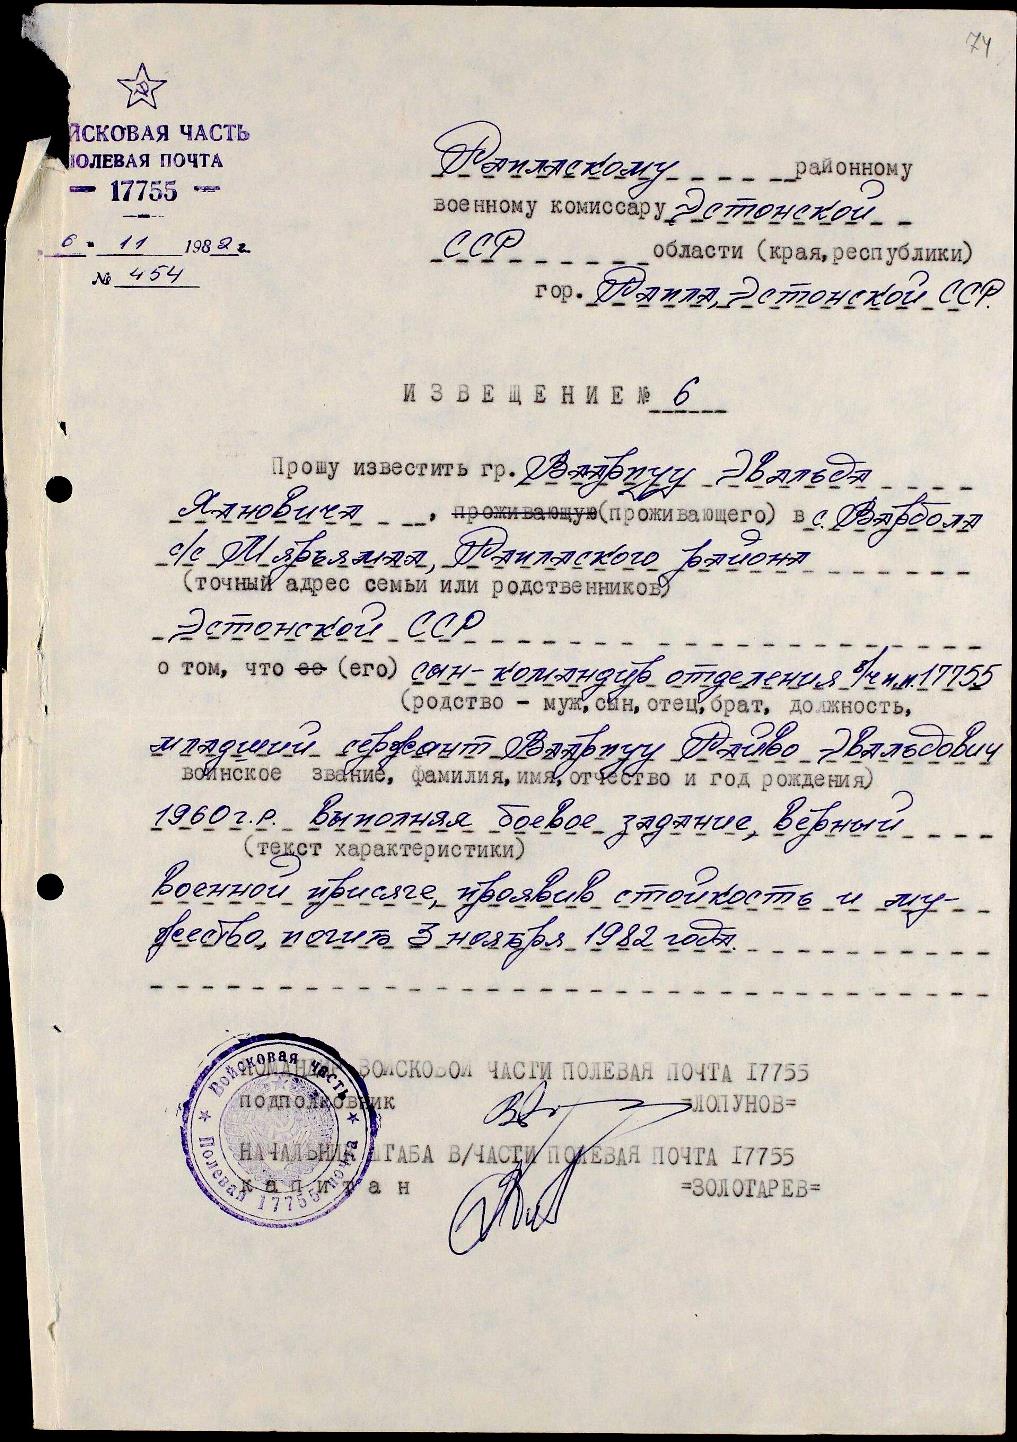 74
ЙСКОВАЯ ЧАСТЬ
ПОЛЕВАЯ ПОЧТА
17755
6 - 11 1982 г.
№ 454
Рапласкому районному
военному комиссару Эстонской
ССР области (края, республики)
гор. Рапла, Эстонской ССР.
ИЗВЕЩЕНИЕ № 6
Прошу известить гр. Ваарпуу Эвальда
Яновича, проживающую (проживающего) в с. Вардола
с/с Мярьямаа, Раплаского района
(точный адрес семьи или родственников)
Эстонской ССР
о том, что ее (его) сын - командир отделения в/ч п.п. 17755
(родство - муж, сын, отец, брат, должность,
младший сержант Ваарпуу Райво Эвальдович
воинское звание, фамилия, имя, отчество и год рождения)
1960 г.р. выполняя боевое задание, верный
(текст характеристики)
военной присяге, проявив стойкость и му-
жество, погиб 3 ноября 1982 года.
КОМАНДИР ВОЙСКОВОЙ ЧАСТИ ПОЛЕВАЯ ПОЧТА 17755
подполковник =ЛОПУНОВ=
НАЧАЛЬНИК ШТАБА В/ЧАСТИ ПОЛЕВАЯ ПОЧТА 17755
капитан =ЗОЛОТАРЕВ=
Войсковая часть
Полевая почта
17755